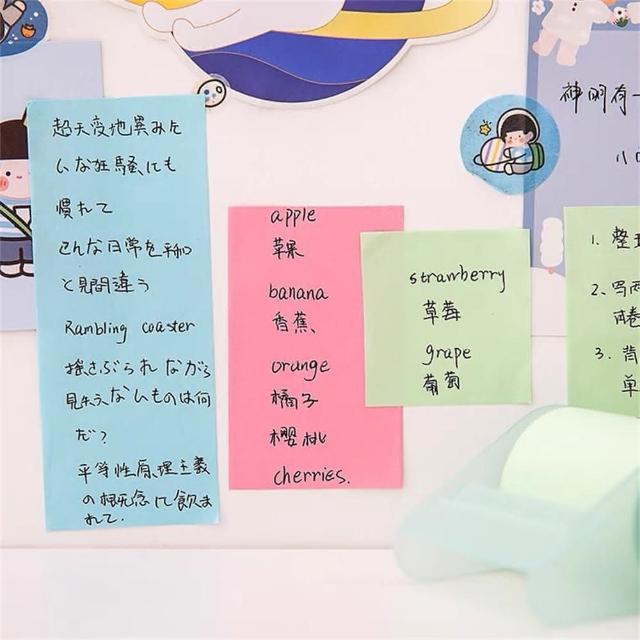 超天変地異みた
いな狂騒にも
慣れて
こんな日常を平和
と見間違う
Rambling coaster
揺さぶられながら
見失うないものは何
だ?
平等性原理主義
の概念に飲ま
れて.
apple
苹果
banana
香蕉
orange
橘子
樱桃
cherries.
strawberry
草莓
grape
葡萄
神明有一
1. 整
2. 写两
3. 背
单